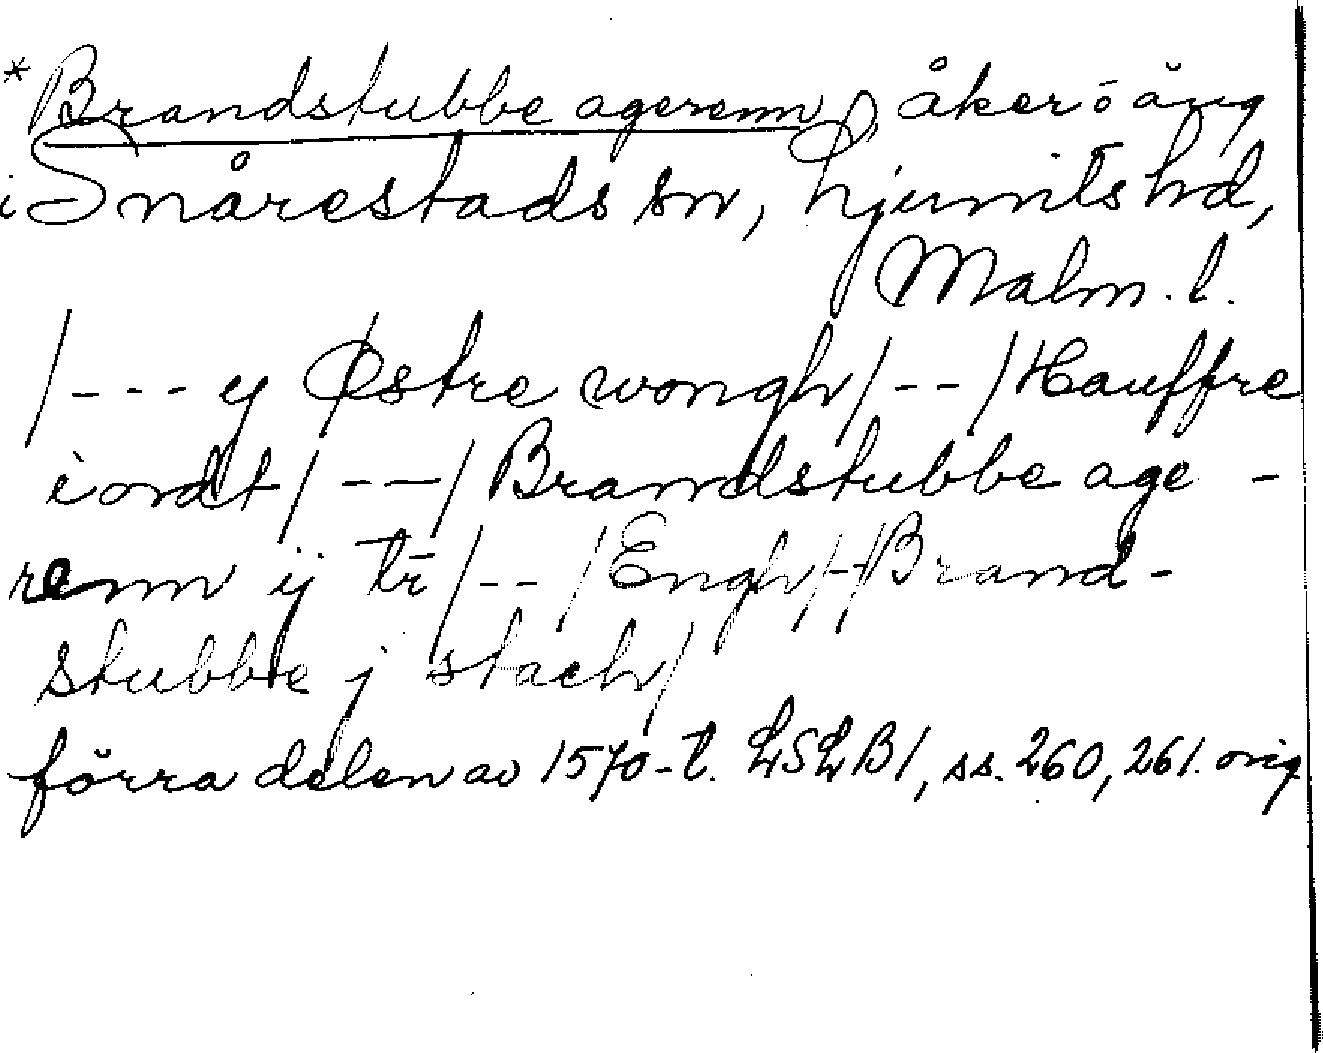 *Brandstubbe agerenn, åker o äng
i Snårestads sn, Ljunits hd,
Malm. l.
/--- y Østre wongh/--/Hauffre
iordt/---/Brandstubbe age-
renn ij tr/--/Engh/-/Brand-
stubbe j stach/
förra delen av 1570-t. LSLB1, ss. 260, 261. orig